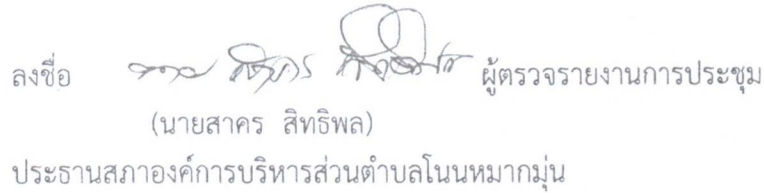 ลงชื่อ ผู้ตรวจรายงานการประชุม
(นายสาคร สิทธิพล)
ประธานสภาองค์การบริหารส่วนตำบลโนนหมากมุ่น